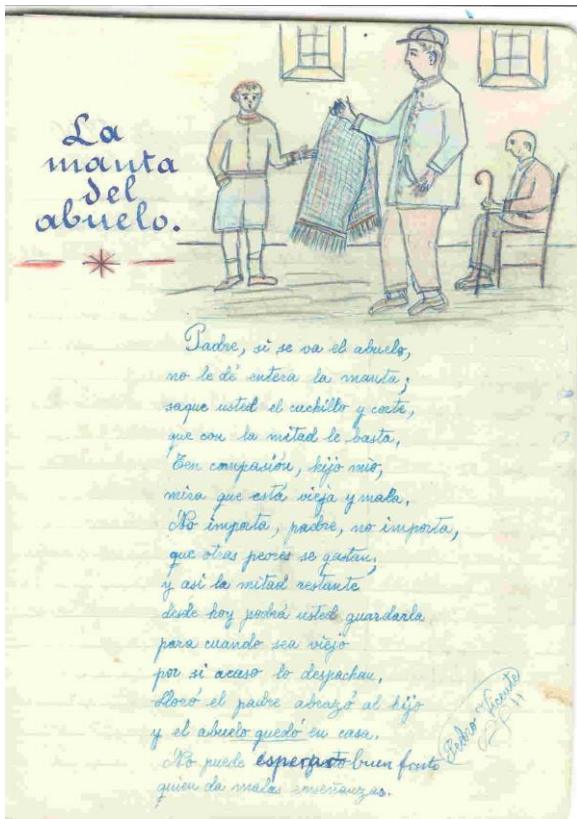 La
manta
del
abuelo.
Padre, si se va el abuelo,
no le dé entera la manta;
saque usted el cuchillo y corte,
que con la mitad le basta,
Ten compasión, hijo mío,
mira que está vieja y mala.
No importa, padre, no importa,
que otras peores se gastan,
y así la mitad restante
desde hoy podrá usted guardarla
para cuando sea viejo
por si acaso lo despachan,
Lloró el padre abrazó al hijo
y el abuelo quedó en casa.
No puede esperar buen fruto
quien da malas enseñanzas.
Pedro Vicente